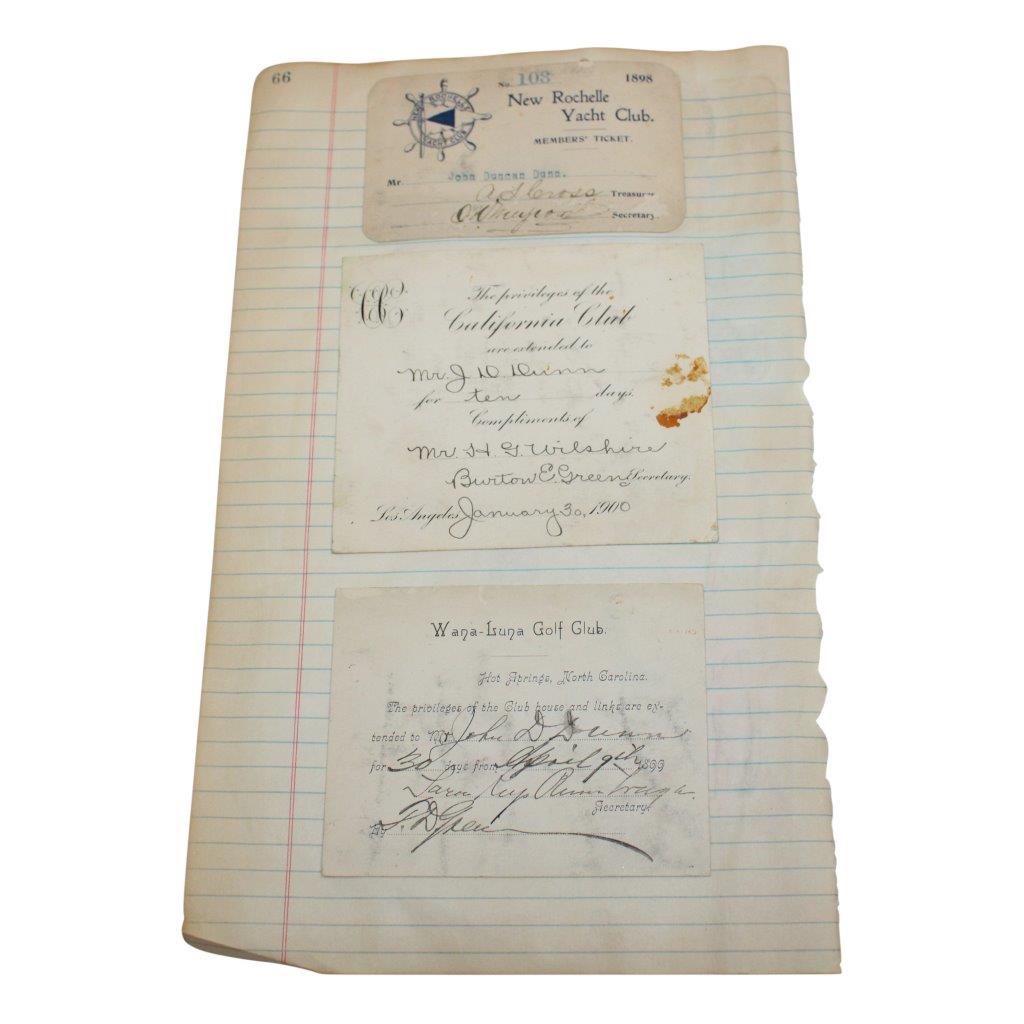 66
No. 103 1898
New Rochelle
Yacht Club.
MEMBERS' TICKET.
NEW ROCHELLE
YACHT CLUB
Mr. John Duncan Dunn.
Cross Treasurer
Secretary.
The privileges of the
California Club
are extended to
Mr. J D Dunn
for ten days.
Compliments of
Mr. H. G. Wilshire
Burton E. Green Secretary.
Los Angeles January 30, 1900
Wana-Luna Golf Club.
Hot Springs, North Carolina.
The privileges of the Club house and links are ex-
tended to Mr John D Dunn
for 30 days from April 9th 1899
Secretary.
By